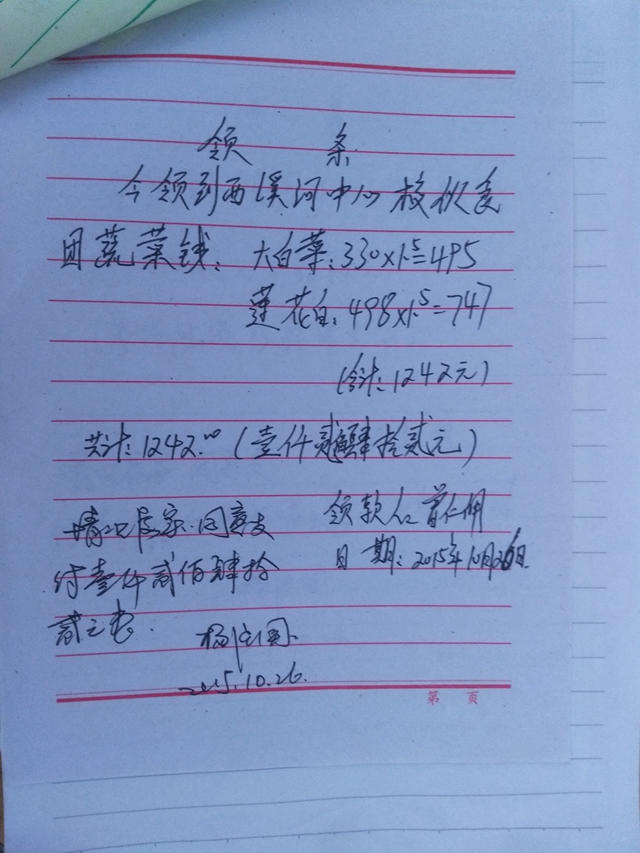 领 条
今领到西溪河中心校伙食
团蔬菜钱：大白菜：330×1.5=495
莲花白：498×1.5=747
(合计：1242元)
共计：1242.00 (壹仟贰佰肆拾贰元)
领款人：曾仁
日期：2015年10月26日
情况属实.同意支
付壹仟贰佰肆拾
贰元整.
2015.10.26.
第 页